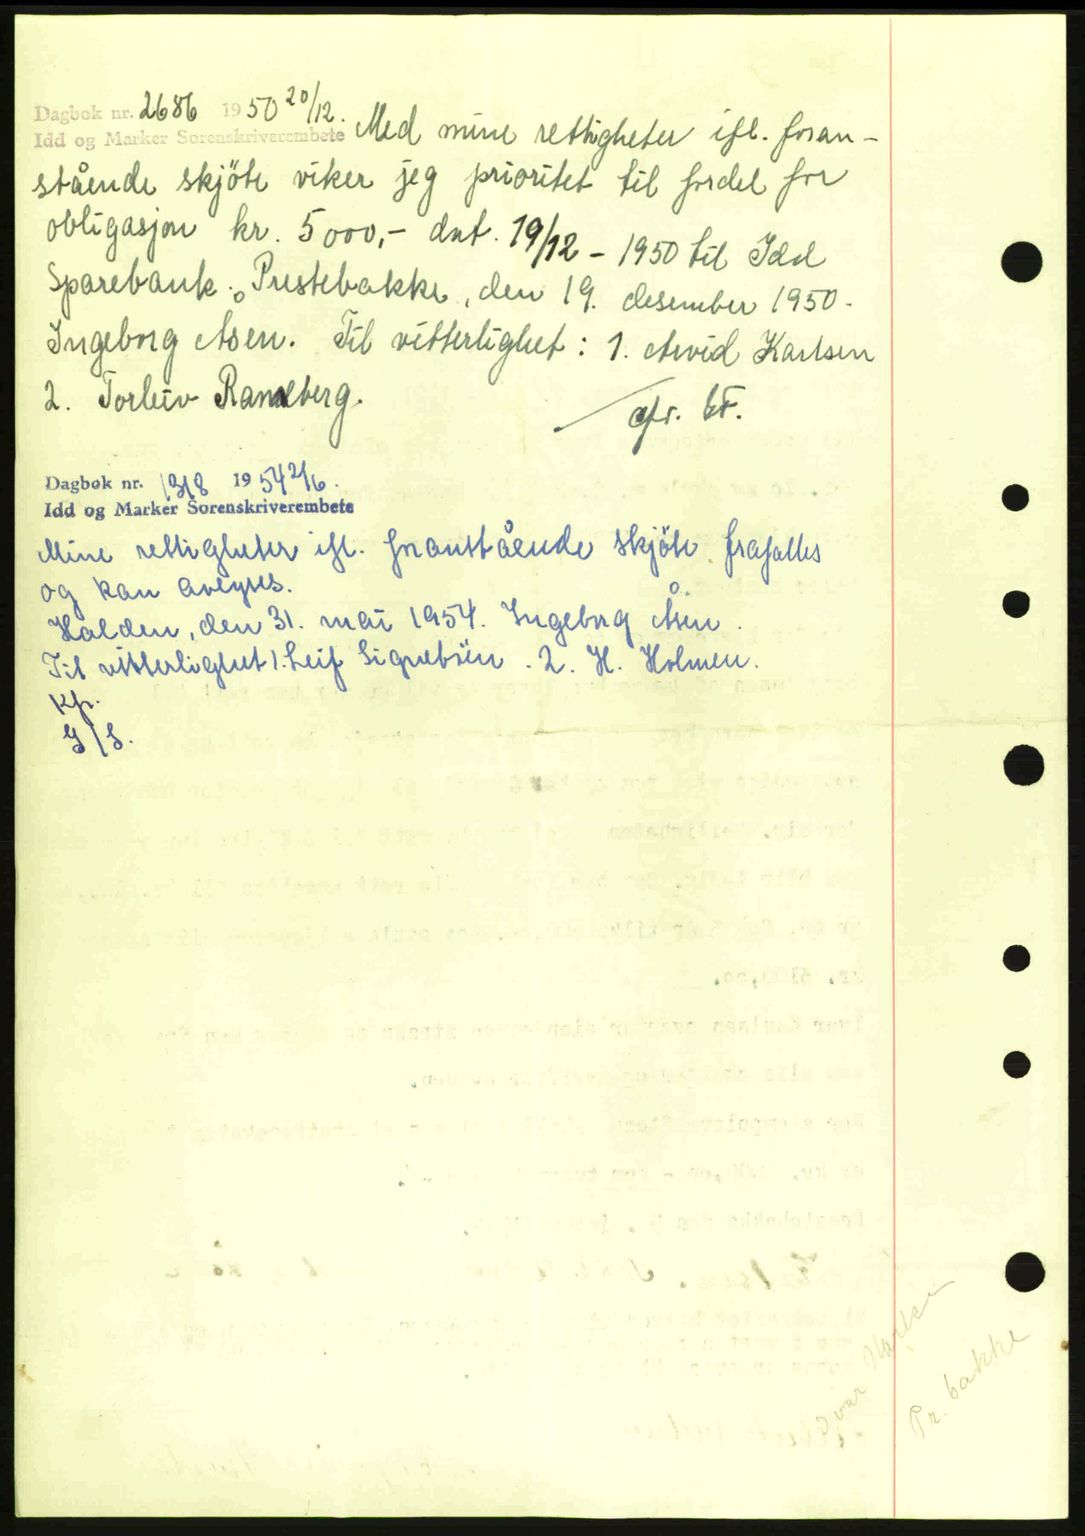 Dagbok nr. 2686 1950 20/12.
Idd og Marker Sorenskriverembete
Med mine rettigheter ifl. foran-
stående skjöte viker jeg prioritet til fordel for
obligasjon kr. 5000,- dat. 19/12 - 1950 til Idd
Sparebank. Prestebakke, den 19. desember 1950.
Ingeborg Åsen. Til vitterlighet: 1. Arvid Karlsen
2. Torleiv Ramberg.
Dagbok nr. 1318 1954 2/6.
Idd og Marker Sorenskriverembete
Mine rettigheter ifl. franstående skjöte frafalles
og kan avlyses.
Halden, den 31. mai 1954. Ingeborg Åsen.
Til vitterlighet 1. Leif Signeböen. 2. H. Holmen.
Kfr.
Ivar Karlsen
Pr. bakke